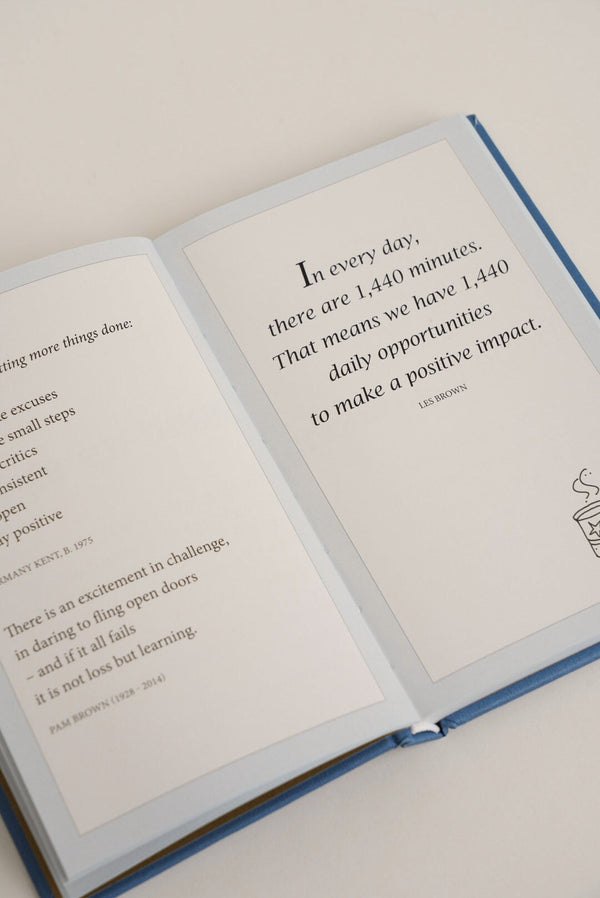 more things done:
excuses
small steps
critics
open
positive
KENT, B. 1975
There is an excitement in challenge,
in daring to fling open doors
– and if it all fails
it is not loss but learning.
PAM BROWN (1928 - 2014)
In every day,
there are 1,440 minutes.
That means we have 1,440
daily opportunities
to make a positive impact.
LES BROWN